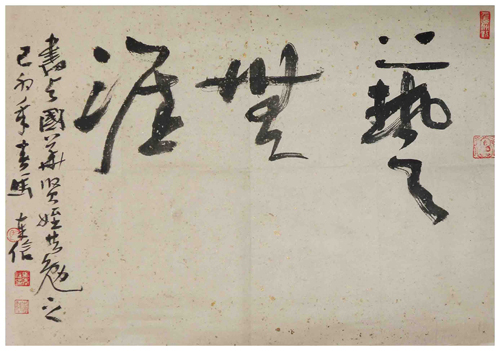 藝無涯
書與國華賢姪共勉之
己卯年春馬士信